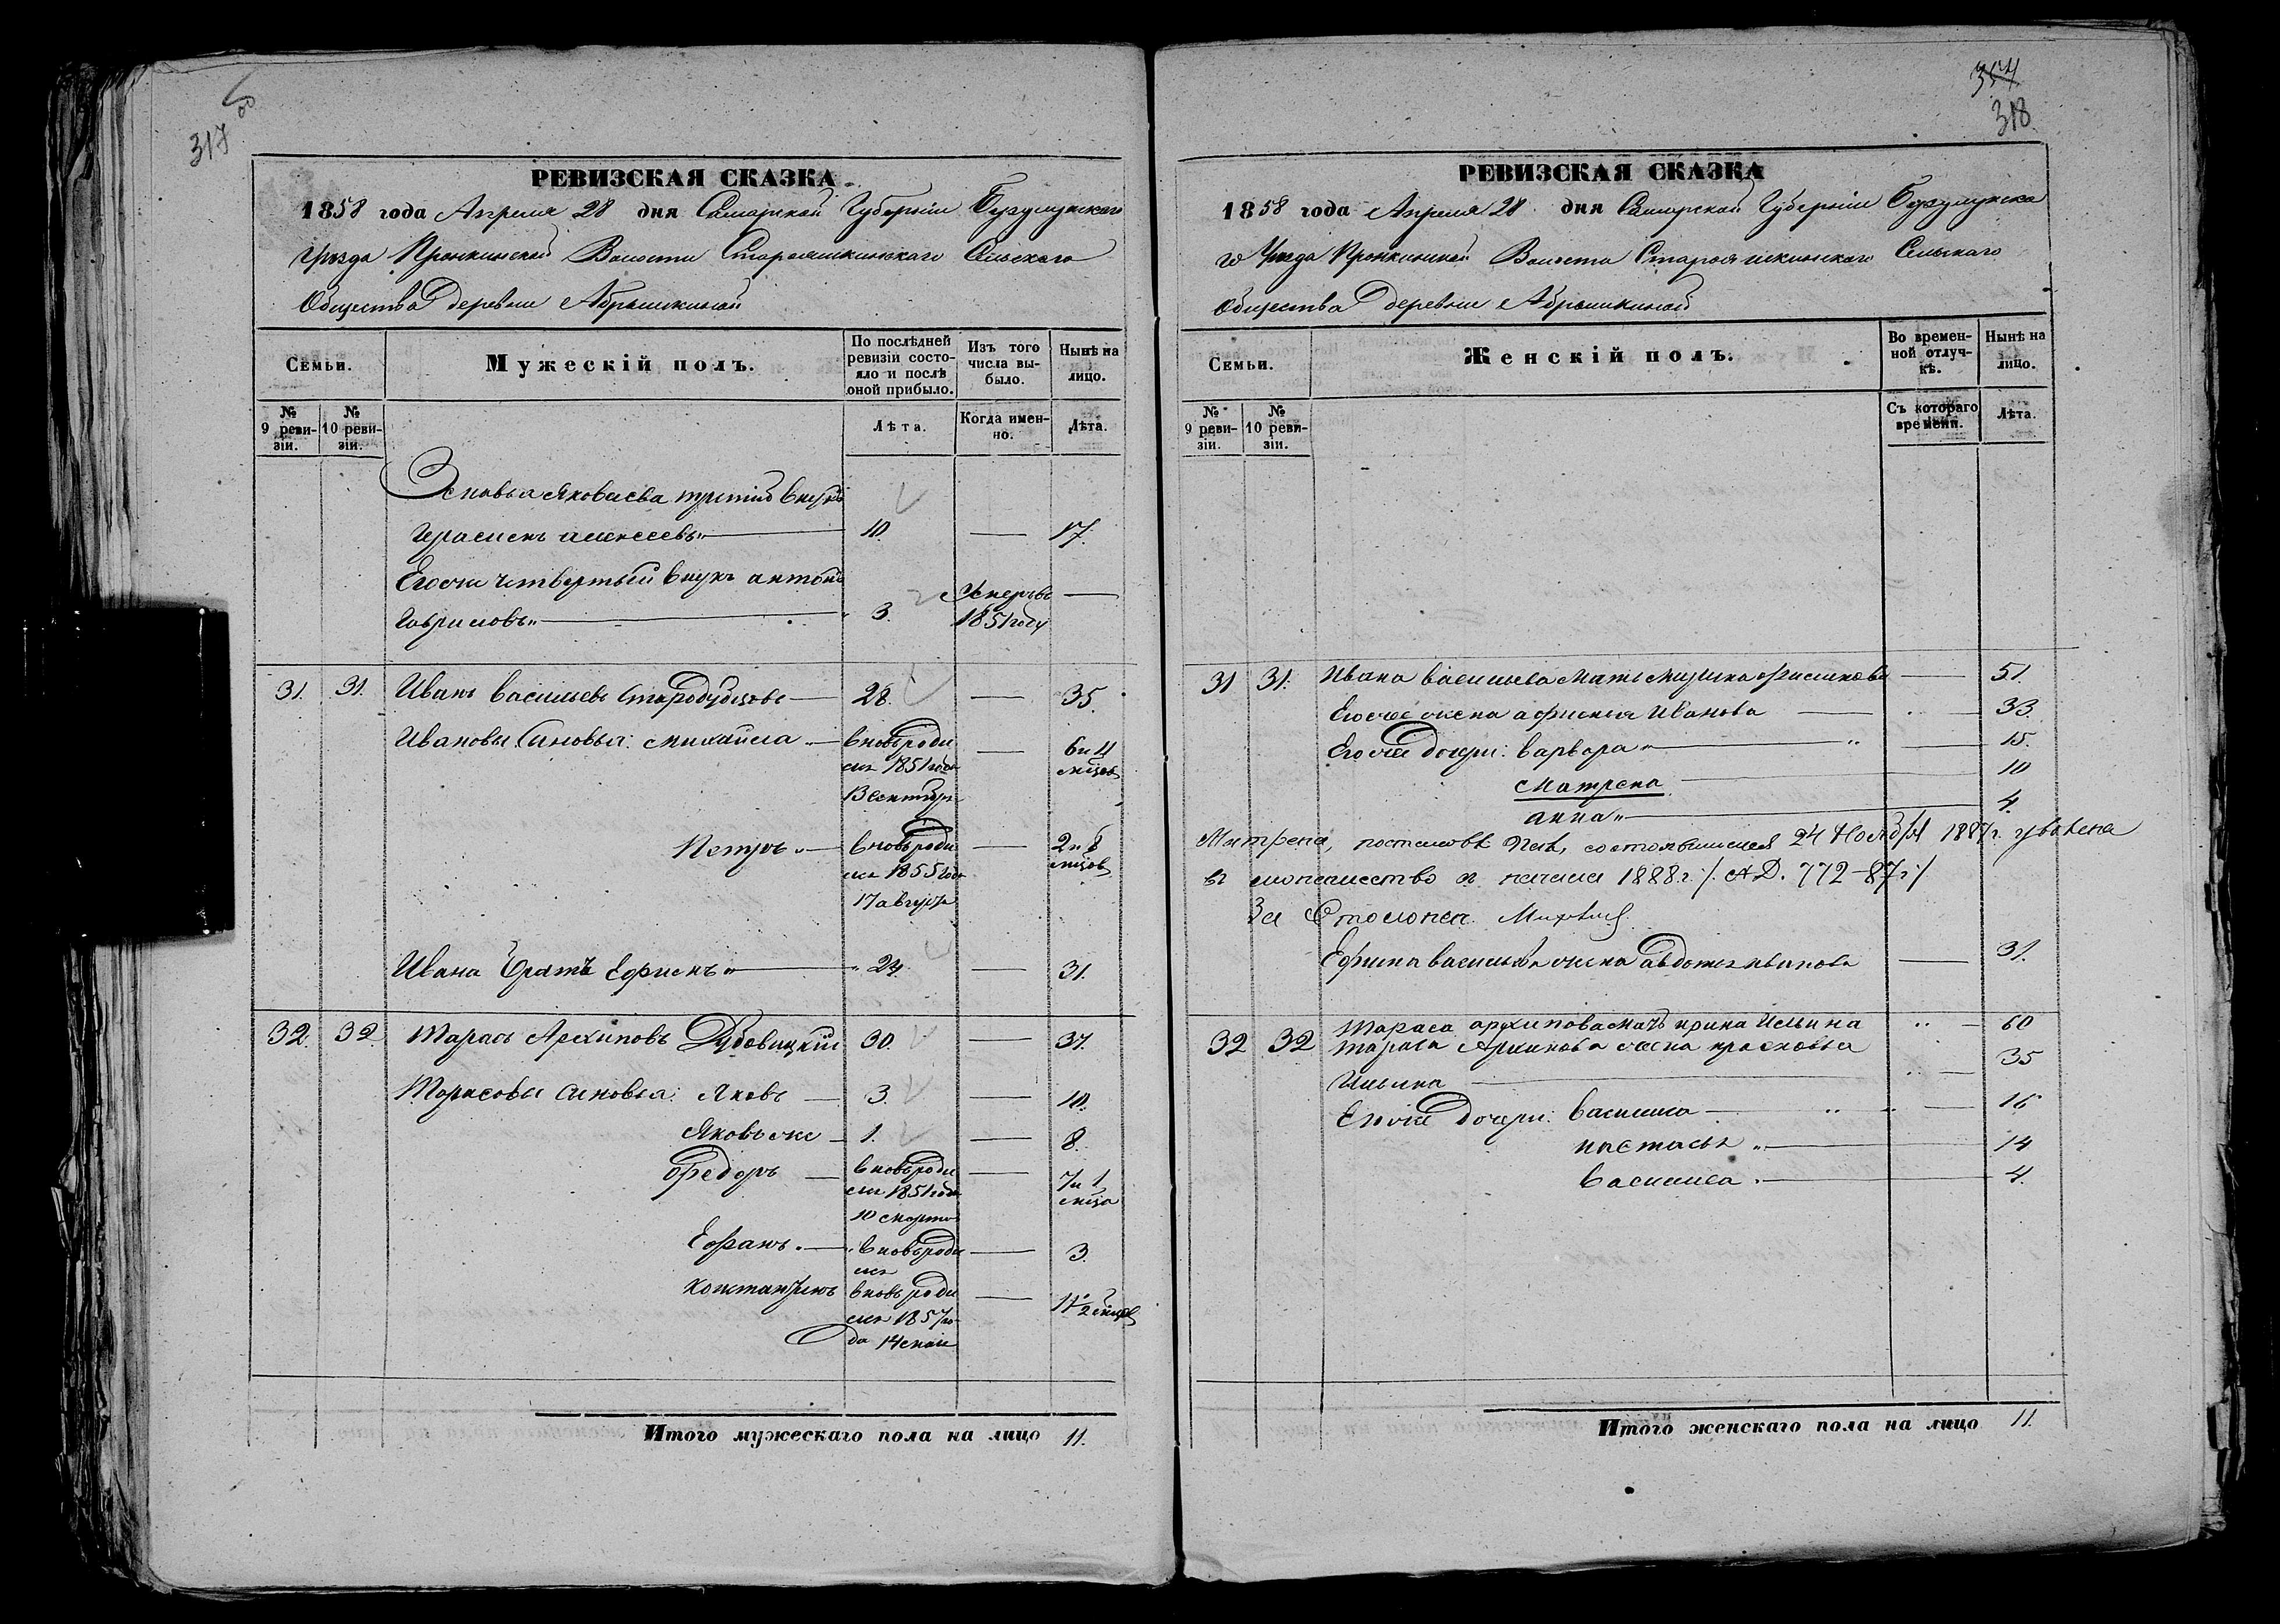 317 об
РЕВИЗСКАЯ СКАЗКА
1858 года Апреля 28 дня Самарской Губернии Бузулукскаго
Уезда Пронкинской Волости Староашкинскаго Сельскаго
Общества деревни Абрашкиной
Семьи.
Мужескій полъ.
По послѣдней ревизіи состояло и послѣ оной прибыло.
Изъ того числа выбыло.
Нынѣ на лицо.
№ 9 ревизіи.
№ 10 ревизіи.
Лѣта.
Когда именно.
Лѣта.
Яковлева третий внукъ
Герасимъ алексеевъ 10. 17.
Егоже четвертый внукъ антонъ
Гавриловъ 3. Умеръ въ 1851 году
31. 31. Иванъ васильевъ Стародубцовъ 28. 35.
Ивановы Сыновья: михаила вновь роди 6 и
лся 1851 года мцов
13 сентября
Петръ вновь роди 2 и 8
лся 1855 года мцов
17 августа
Ивана братъ Ефимъ 24 31.
32. 32 Тарасъ Архиповъ Дубовицкій 30. 37.
Тарасовы сыновья: Яковъ 3. 10.
Яковъ же 1. 8.
Федоръ вновь роди 7 и 1
лся 1851 года мца
10 марта
вновь роди 3.
лся
Константинъ вновь роди 11 1/2 мцов
лся 1857 го
да 14 маи
Итого мужескаго пола на лицо 11.
354
318
РЕВИЗСКАЯ СКАЗКА
1858 года Апреля 28 дня Самарской Губернии Бузулукска
го Уезда Пронкинской Волости Староашкинскаго Сельскаго
Общества деревни Абрашкиной
Семьи.
Женскій полъ.
Во временной отлучкѣ.
Нынѣ на лицо.
№ 9 ревизіи.
№ 10 ревизіи.
Съ котораго времени.
Лѣта.
31 31. Ивана васильева мать 51.
Егоже жена афимья Иванова 33.
Егоже дочери: варвара 15.
Матрена 10
анна 4.
Матрена, постановл. состоявшимся 24 Ноября 1887 г. уволена
въ монашество с начала 1888 г. /. Д. 772-87 г./
За Столонач.
Ефима васильева жена авдотья иванова 31.
32 32 Тараса архипова мать ирина Ильина 60
Тараса Архипова жена прасковья
Ильина 35
Егоже дочери: василиса 16
настасья 14
василиса 4.
Итого женскаго пола на лицо 11.